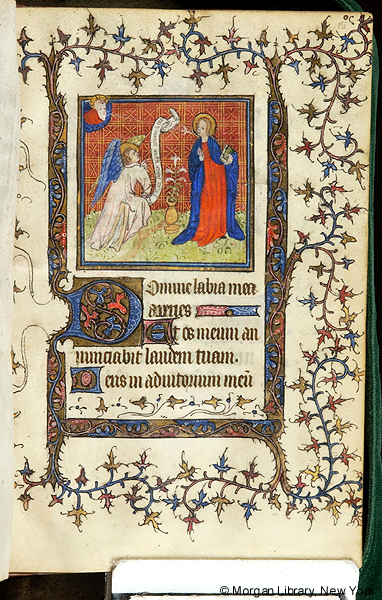 15
Domine labia mea
aperies
Et os meum an
nunciabit laudem tuam.
Deus in adiutorium meū
© Morgan Library, New Yo